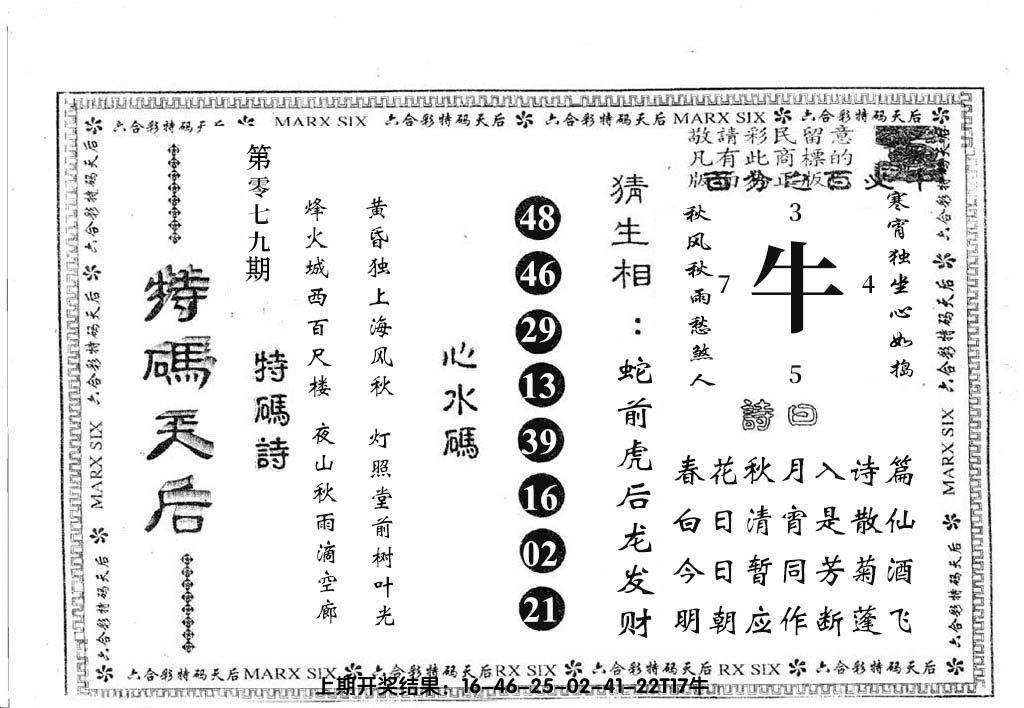 六合彩特码天后
MARX SIX
六合彩特码天后
六合彩特码天后
MARX SIX
六合彩特码天后
敬請彩民留意
凡有此商標的
版面為正版
猜生相：蛇前虎后龙发财
寒宵独坐心如捣
3
7
牛
4
5
秋风秋雨愁煞人
第零七九期
特碼天后
特碼詩
黄昏独上海风秋 灯照堂前树叶光
烽火城西百尺楼 夜山秋雨滴空廊
心水碼
48
46
29
13
39
16
02
21
詩曰
春花秋月入诗篇
白日清宵是散仙
今日暂同芳菊酒
明朝应作断蓬飞
六合彩特码天后
六合彩特码天后
MARX SIX
六合彩特码天后
六合彩特码天后
六合彩特码天后
MARX SIX
六合彩特码天后
六合彩特码天后 MARX SIX
六合彩特码天后 RX SIX
六合彩特码天后 RX SIX
六合彩特码天后
上期开奖结果：16-46-25-02-41-22T17牛